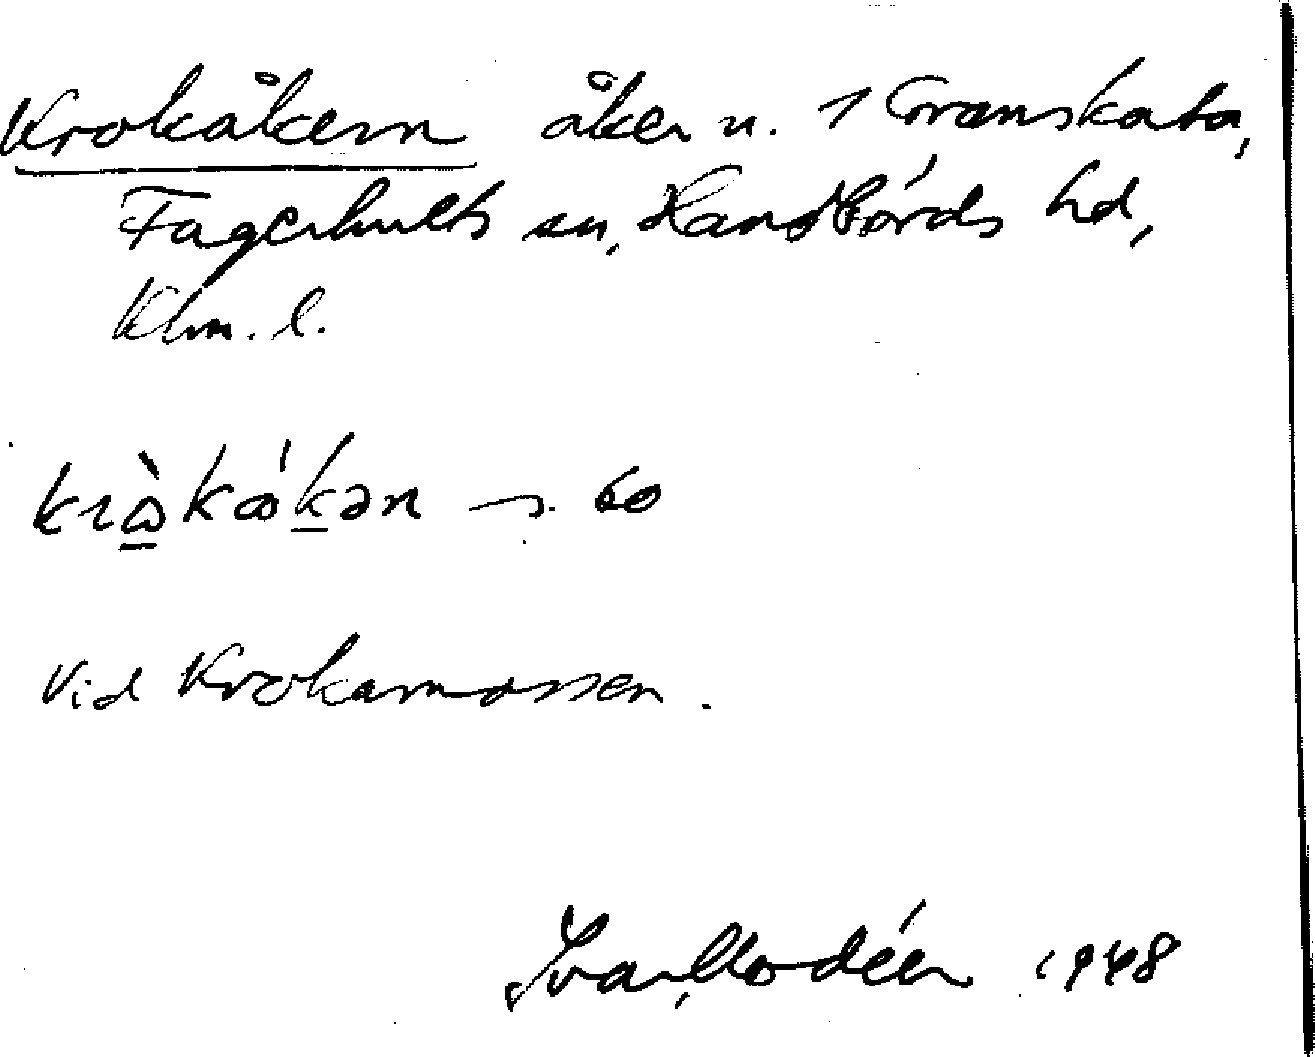 Krokåkern åker n. 1 Granskata,
Fagerhults sn, Handbörds hd,
Klm. l.
vid Krokamossen.
Ivar Modéer 1948